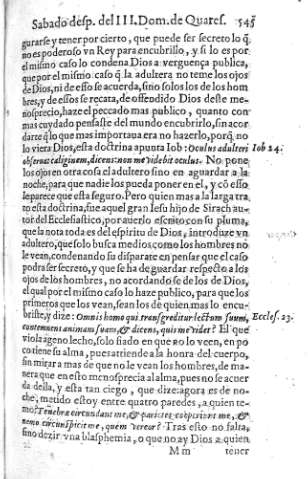 Sabado desp. del III. Dom. de Quares. 545
gurarse y tener por cierto, que puede ser secreto lo q̃
no es poderoso vn Rey para encubrillo, y si lo es por
el mismo caso lo condena Dios a verguença publica,
que por el mismo caso q̃ la adultera no teme los ojos
de Dios, ni de esso se acuerda, sino solos los de los hom
bres, y de essos se recata, de offendido Dios deste me-
nosprecio, haze el peccado mas publico, quanto con
mas cuydado pensaste del mundo encubrirlo, sin acor
darte q̃ lo que mas importaua era no hazerlo, porq̃ no
lo viera Dios, esta doctrina apunta Iob: Oculus adulteri Iob 24.
obseruat caliginem, dicens: non me videbit oculus. No pone
los ojos en otra cosa el adultero sino en aguardar a la
noche, para que nadie los pueda poner en el, y cõ esso
le parece que esta seguro. Pero quien mas a la larga tra
to esta doctrina, fue aquel gran Iesu hijo de Sirach au-
tor del Ecclesiastico, por auerlo escrito con su pluma,
que la nota toda es del espiritu de Dios, introduze vn
adultero, que solo busca medios, como los hombres no
le vean, condenando su disparate en pensar que el caso
podra ser secreto, y que se ha de guardar respecto a los
ojos de los hombres, no acordando se de los de Dios,
el qual por el mismo caso lo haze publico, para que los
primeros que los vean, sean los de quien mas lo encu-
briste, y dize: Omnis homo qui transgreditur lectum suum, Eccles. 23.
contemnens animam suam, & dicens, quis me videt? El que
viola ageno lecho, solo fiado en que no lo veen, en po
co tiene su alma, pues atriende a la honra del cuerpo,
sin mirar a mas de que no le vean los hombres, de ma-
nera que en esto menosprecia al alma, pues no se acuer
da della, y esta tan ciego, que dize: agora es de no-
che, metido estoy entre quatro paredes, a quien te-
mo? Tenebræ circundant me, & parietes cooperiunt me, &
nemo circunspicit me, quem vereor? Tras esto no falta,
sino dezir vna blasphemia, o que no ay Dios a quien
M m tener